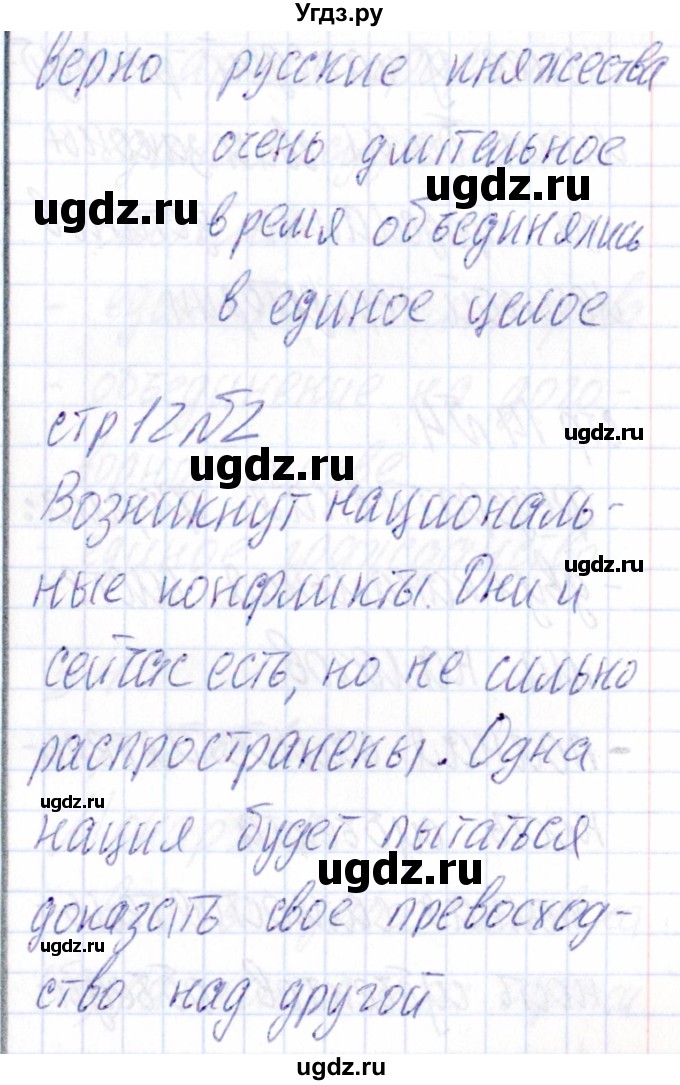 Угдз.ру
верно русские княжества
очень длительное
ugdz.ru
ugdz.ru
время объединялись
в единое целое
стр 12 №2
ugdz.ru
ugdz.ru
Возникнут националь-
ные конфликты. Они и
ugdz.ru
сейчас есть, но не сильно
распространены. Одна
ugdz.ru
нация будет пытаться
ugdz.ru
доказать свое превосход-
ugdz.ru
ство над другой
ugdz.ru